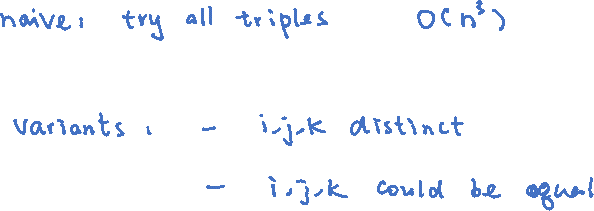 naive: try all triples O(n³)
variants: - i,j,k distinct
- i,j,k could be equal